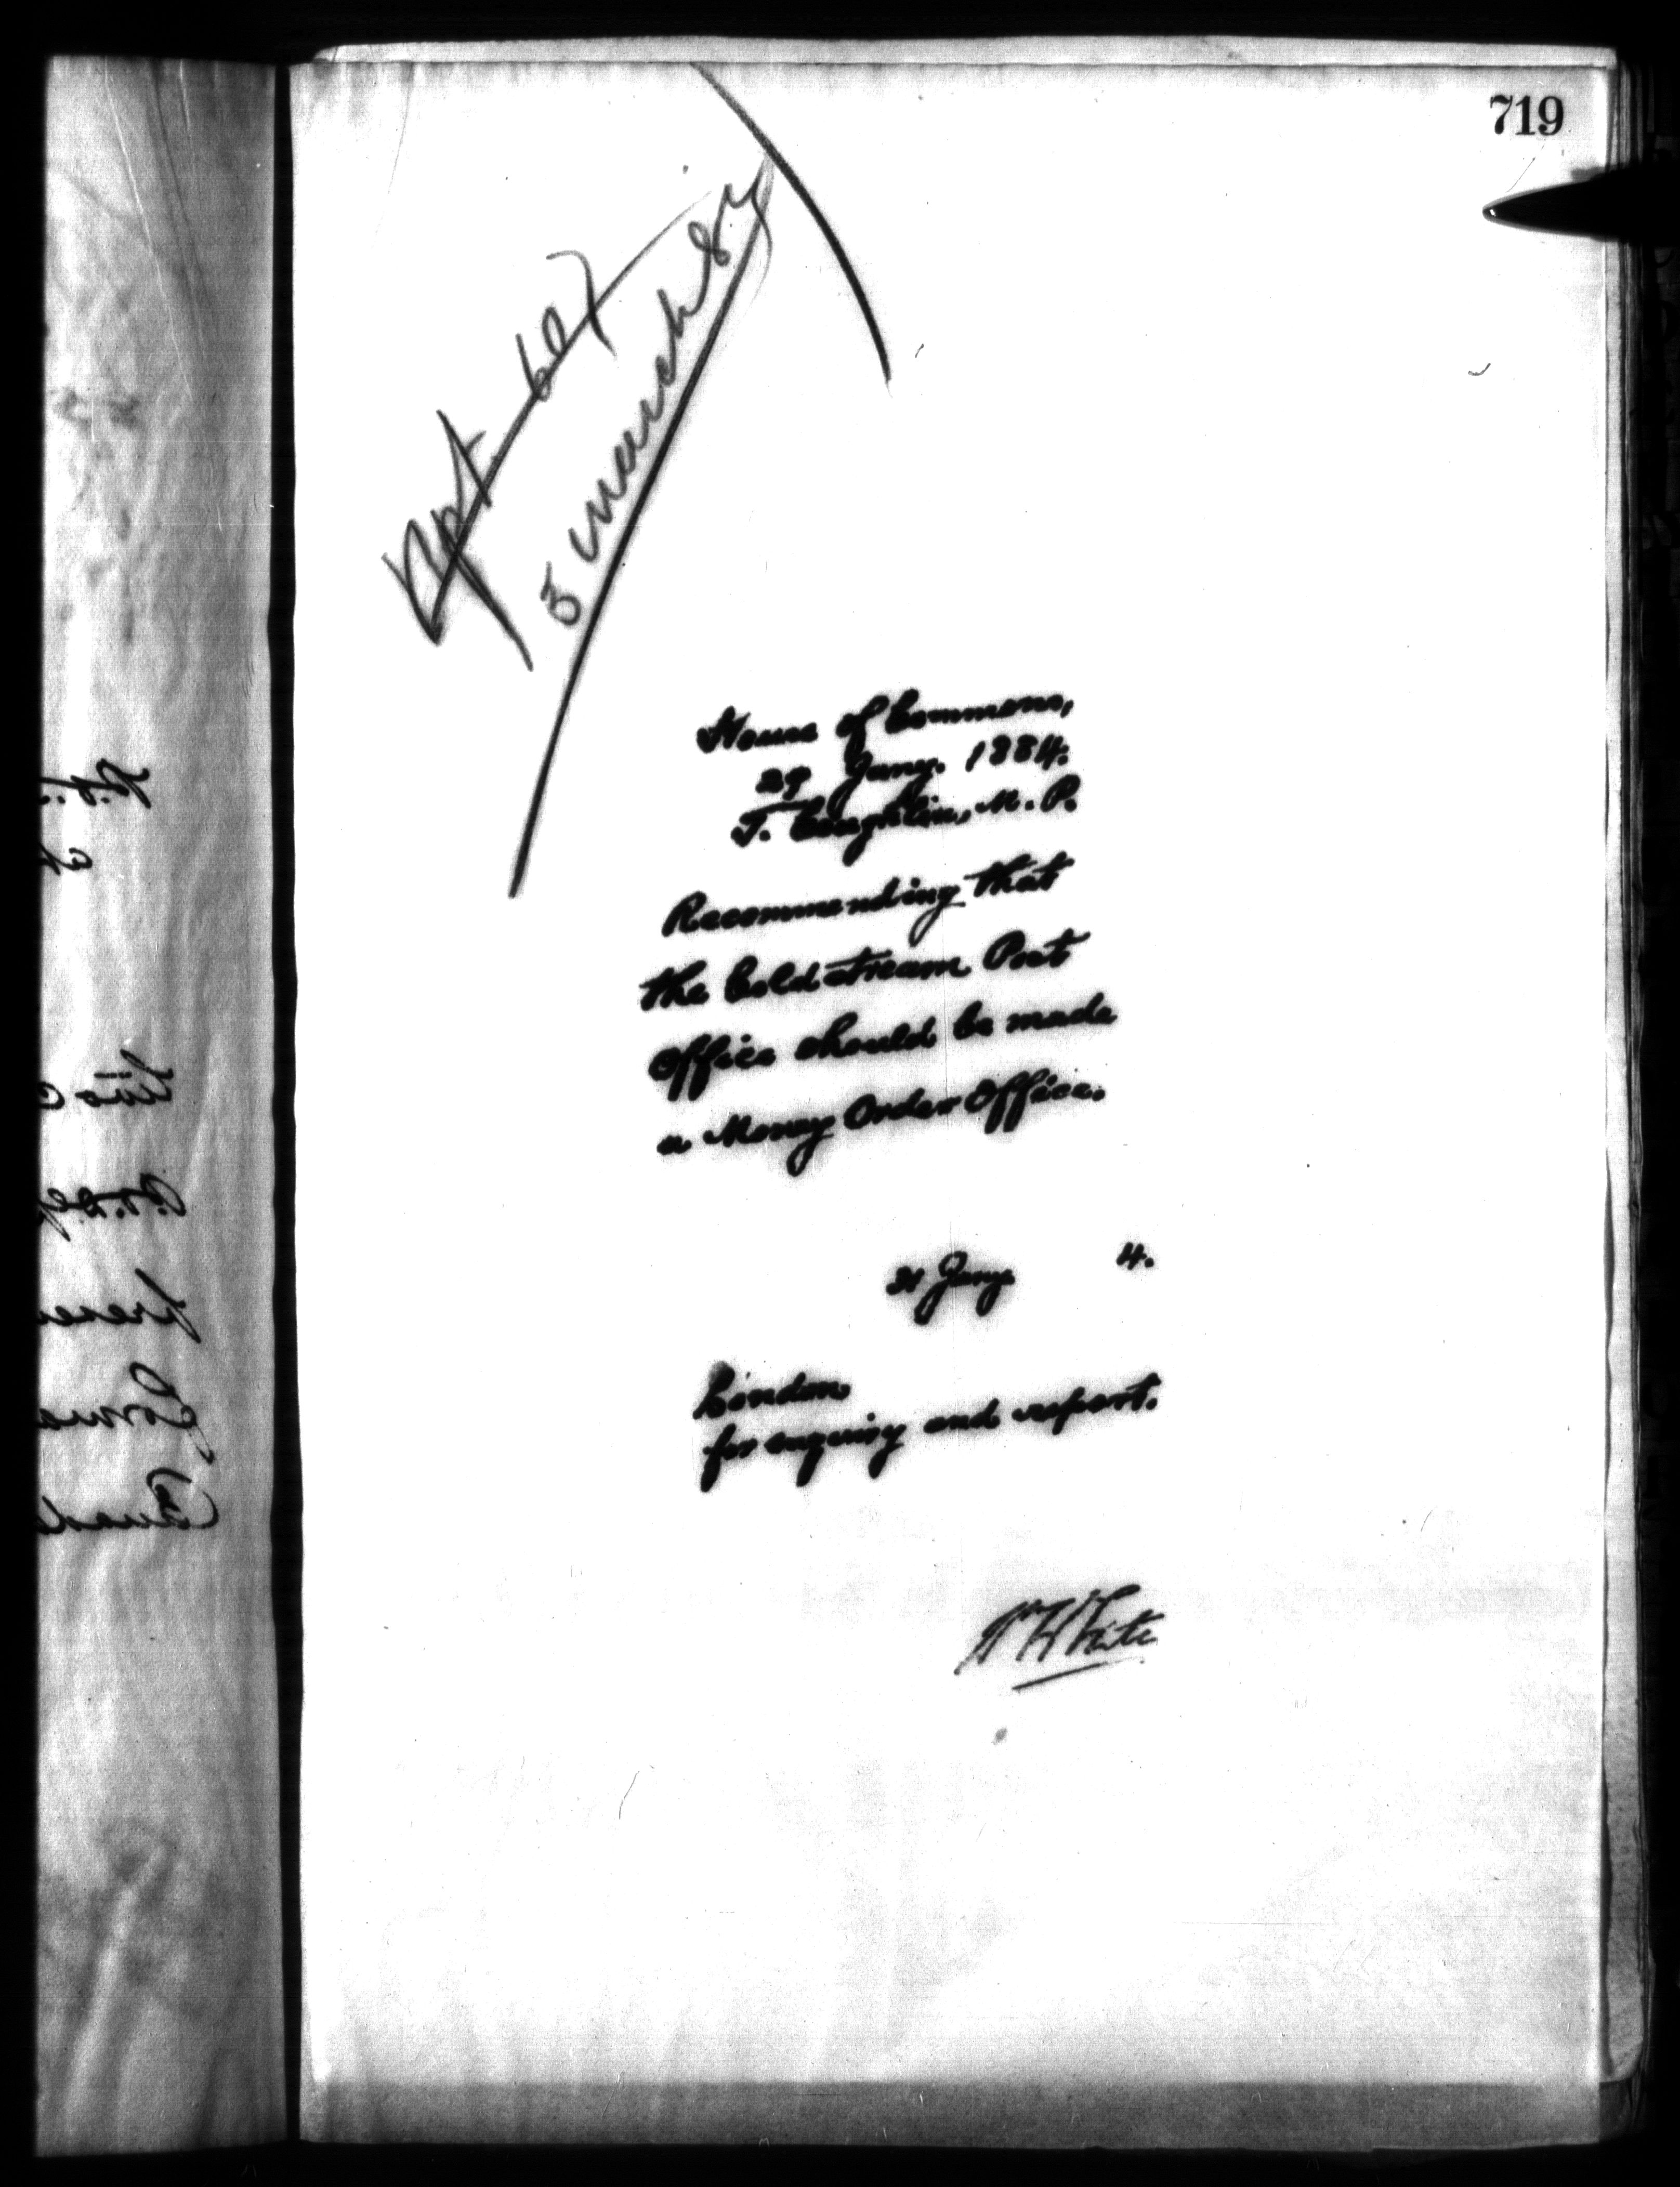 719
Rpt. 607
3 March 84
House of Commons,
29 Jany. 1884.
T. Coughlin, M. P.
Recommending that
the Coldstream Post
Office should be made
a Money Order Office.
31 Jany 4.
London
for enquiry and report.
Wm White